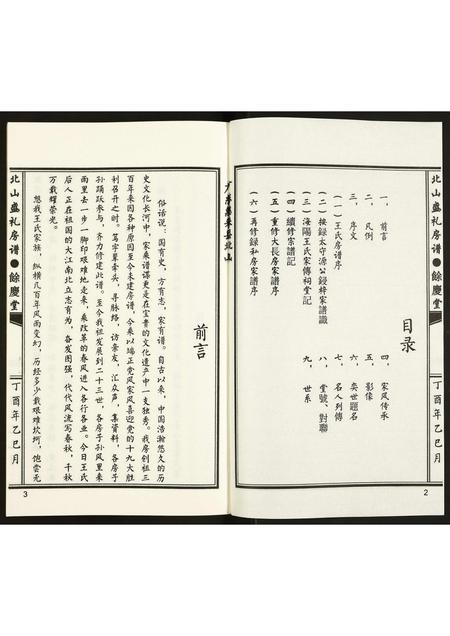 北山盛礼房谱●餘慶堂
丁酉年乙巳月
2
目录
一、前言
二、凡例
三、序文
（一）王氏房谱序
（二）按録太守源公鋟梓家譜識
（三）海陽王氏家傳祠堂記
（四）續修宗譜記
（五）重修大長房家譜序
（六）再修録私房家譜序
四、家风传承
五、影像
六、奕世題名
七、名人列傳
八、堂號、對聯
九、世系
北山
前言
俗话说：国有史，方有志，家有谱。自古以来，中国浩瀚悠久的历
史文化长河中，家乘谱谍更是在宝贵的文化遗产中一支独秀。我房创祖三
百年来因各种原因至今未建房谱，今乘以端正党风家风喜迎党的十九大胜
利召开之时。笃字辈牵头，寻脉络，访亲友，汇众声，集资料，各房子
孙踊跃参与，齐力修建此谱。至今我祖发展到二十三世，各房子孙风里来
雨里去一步一脚印艰难地走来，乘改革的春风进入各行各业。今日王氏
后人正在祖国的大江南北立志有为，奋发图强，代代风流写春秋，千秋
万载耀荣光。
悠我王氏家族，纵横几百年风雨变幻，历经多少载艰难坎坷，饱尝无
北山盛礼房谱●餘慶堂
丁酉年乙巳月
3